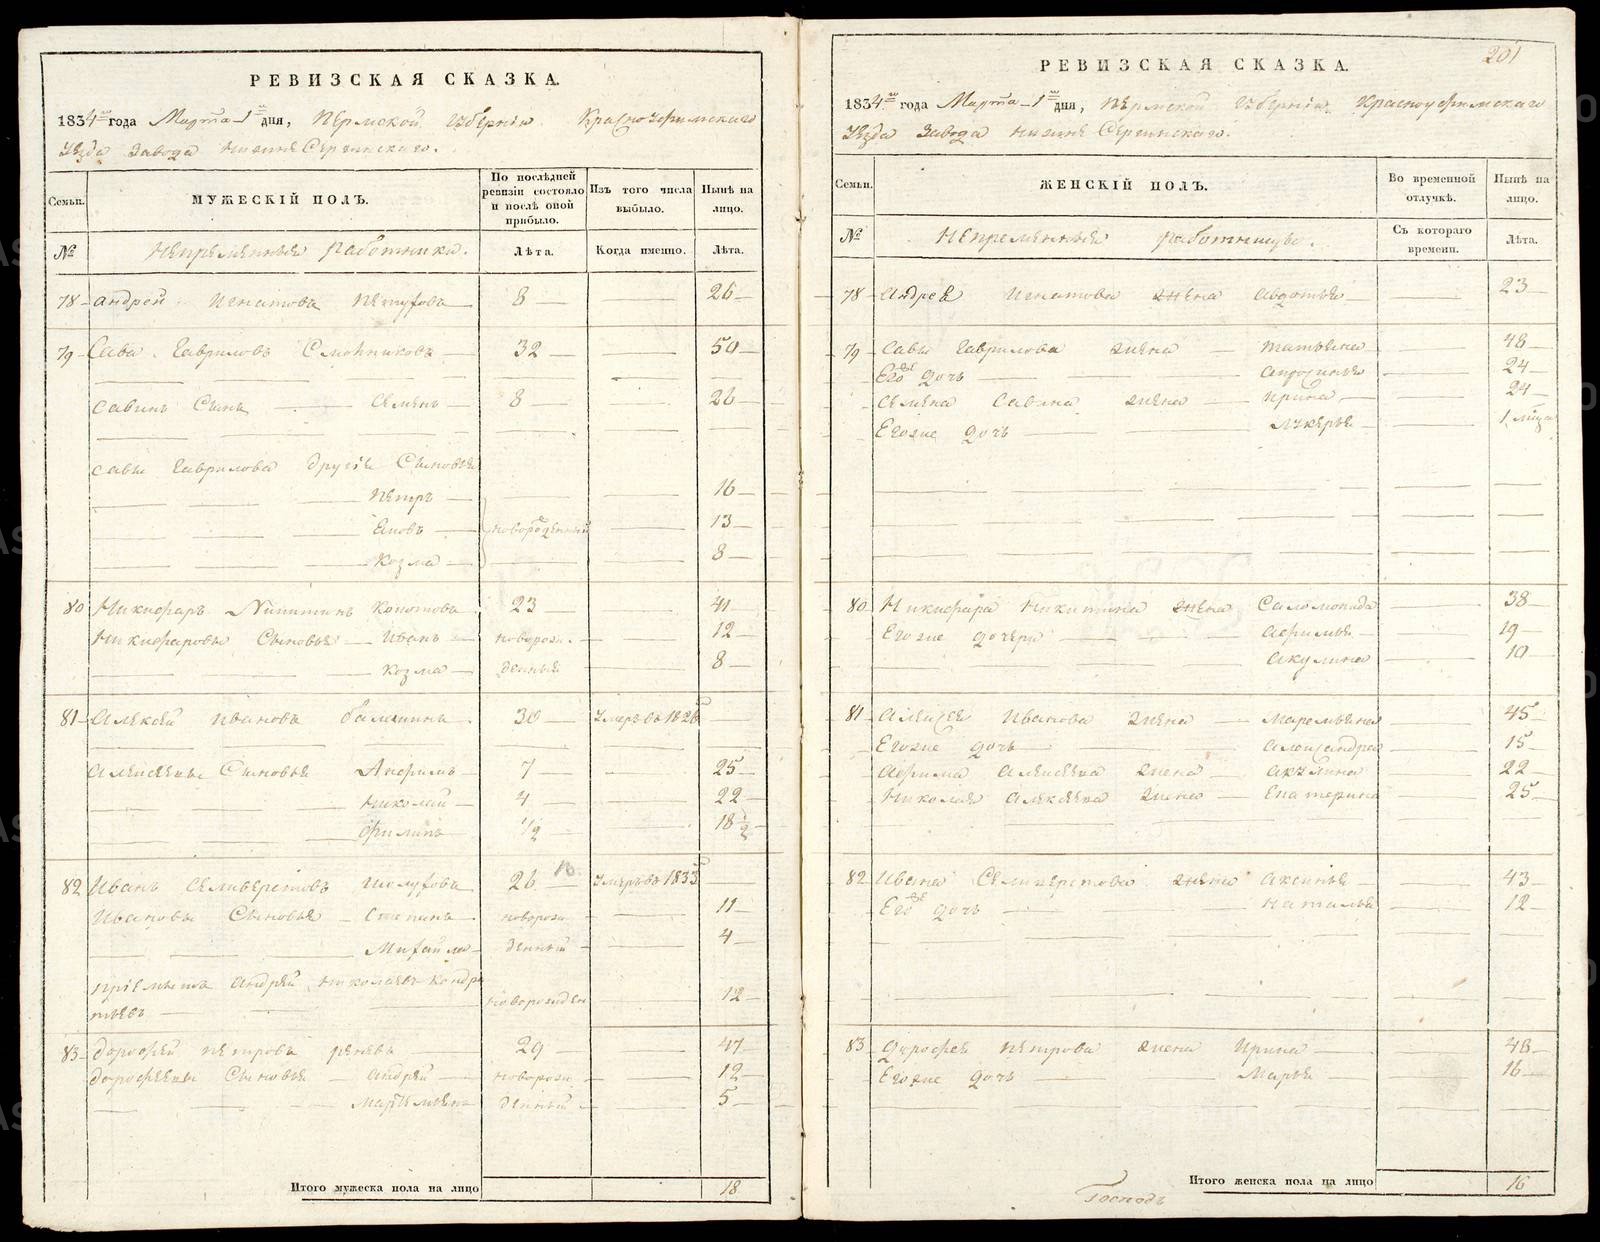 РЕВИЗСКАЯ СКАЗКА.
1834го года Марта 1го дня, Пермской губернии Красноуфимского
уезда завода Нижне Сергинского.
Семьи. МУЖЕСКІЙ ПОЛЪ. По послѣдней ревизіи состояло и послѣ оной прибыло. Изъ того числа выбыло. Нынѣ на лицо.
№ Непременныя работники. Лѣта. Когда именно. Лѣта.
78 Андрей Игнатовъ 8 26
79 Сава Гавриловъ 32 50
Савинъ Сынъ Семенъ 8 26
Савы Гаврилова другие Сыновья
Петръ 16
Яковъ новорожденный 13
Козма 8
80 Никифоръ Никитинъ 23 41
Никифоровы Сыновья Иванъ новорож- 12
Козма денныя 8
81 Алексей Ивановъ 30 умеръ въ 1826
Алексеевы Сыновья 7 25
Николай 4 22
Филипъ 1/2 18 1/2
82 Иванъ Селиверстовъ 26 умеръ въ 1833
Ивановы Сыновья Степанъ новорож 11
Михайла денный 4
приемышъ Андрей Николаевъ Кондра
тьевъ новорожден 12
83 Дорофей Петровъ 29 47
Дорофеевы Сыновья Андрей новорож 12
денный 5
Итого мужеска пола на лицо 18
201
РЕВИЗСКАЯ СКАЗКА.
1834го года Марта 1го дня, Пермской губернии Красноуфимского
уезда завода Нижне Сергинского.
Семьи. ЖЕНСКІЙ ПОЛЪ. Во временной отлучкѣ. Нынѣ на лицо.
№ Непременныя работницы. Съ котораго времени. Лѣта.
78 Андрея Игнатова жена Авдотья 23
79 Савы Гаврилова жена Татьяна 48
Его же дочь 24
Семена Савина жена Ирина 24
Егоже дочь Лукерья 1 мѣца
80 Никифора Никитина жена Соломонида 38
Егоже дочери Афимья 19
Акулина 10
81 Алексея Иванова жена Маремьяна 45
Егоже дочь Александра 15
Афима Алексеева жена Акулина 22
Николая Алексеева жена Екатерина 25
82 Ивана Селиверстова жена Аксинья 43
Его же дочь Наталья 12
83 Дорофея Петрова жена Ирина 48
Егоже дочь Марья 16
Итого женска пола на лицо 16
Господъ